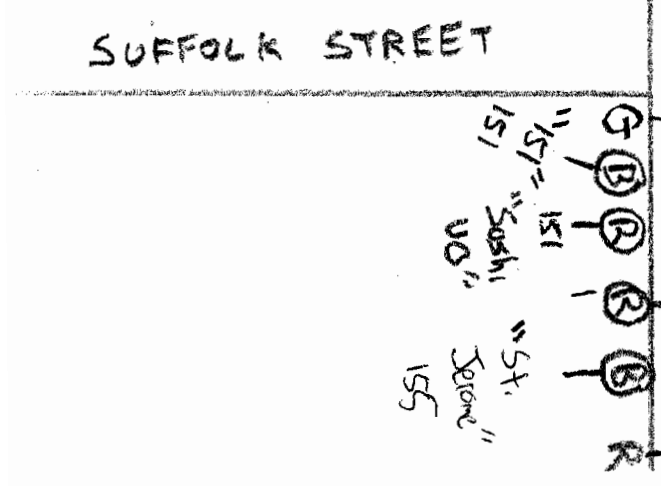 SUFFOLK STREET
G
"151"
151
B
R
151
"Sushi
UO"
R
B
"St.
Jerome"
155
R